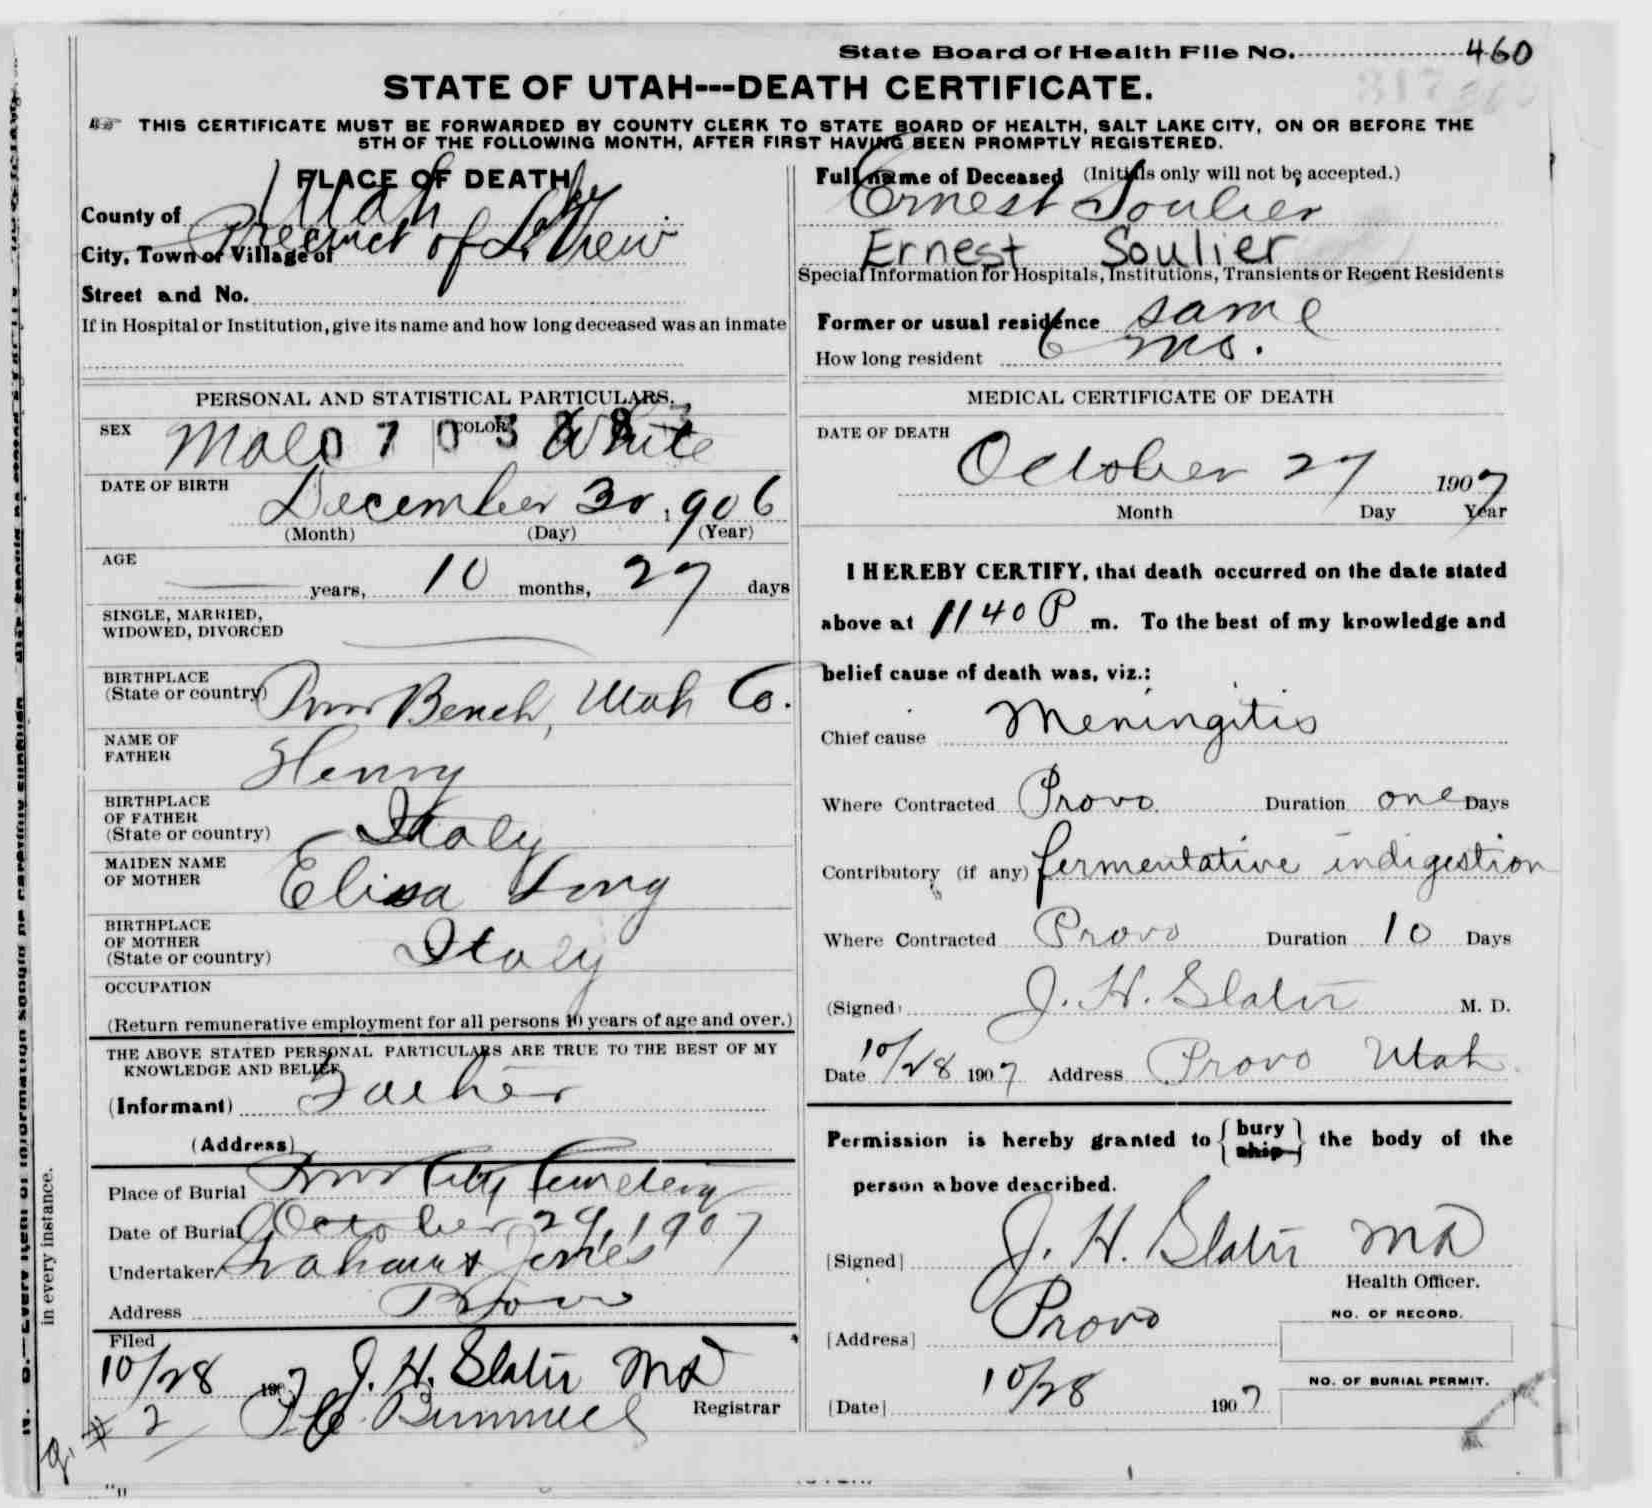 State Board of Health File No. 460
STATE OF UTAH---DEATH CERTIFICATE.
THIS CERTIFICATE MUST BE FORWARDED BY COUNTY CLERK TO STATE BOARD OF HEALTH, SALT LAKE CITY, ON OR BEFORE THE
5TH OF THE FOLLOWING MONTH, AFTER FIRST HAVING BEEN PROMPTLY REGISTERED.
PLACE OF DEATH
County of Utah
City, Town or Village of Precinct of L. View
Street and No.
If in Hospital or Institution, give its name and how long deceased was an inmate
Full name of Deceased (Initials only will not be accepted.)
Ernest Soulier
Ernest Soulier
Special Information for Hospitals, Institutions, Transients or Recent Residents
Former or usual residence same
How long resident 6 mo.
PERSONAL AND STATISTICAL PARTICULARS.
SEX Male COLOR White
0 7 0 3
DATE OF BIRTH December 30, 1906
(Month) (Day) (Year)
AGE
years, 10 months, 27 days
SINGLE, MARRIED,
WIDOWED, DIVORCED
BIRTHPLACE
(State or country) Prov Bench, Utah Co.
NAME OF
FATHER Henry
BIRTHPLACE
OF FATHER
(State or country) Italy
MAIDEN NAME
OF MOTHER Elisa Long
BIRTHPLACE
OF MOTHER
(State or country) Italy
OCCUPATION
(Return remunerative employment for all persons 10 years of age and over.)
THE ABOVE STATED PERSONAL PARTICULARS ARE TRUE TO THE BEST OF MY
KNOWLEDGE AND BELIEF
(Informant) Father
(Address)
Place of Burial Prov City Cemetery
Date of Burial October 29, 1907
Undertaker Graham & Jones
Address Provo
Filed
10/28 1907 J. H. Slater MD
# 2 Registrar
MEDICAL CERTIFICATE OF DEATH
DATE OF DEATH
October 27 1907
Month Day Year
I HEREBY CERTIFY, that death occurred on the date stated
above at 1140 P m. To the best of my knowledge and
belief cause of death was, viz.:
Chief cause Meningitis
Where Contracted Provo Duration one Days
Contributory (if any) fermentative indigestion
Where Contracted Provo Duration 10 Days
(Signed) J. H. Slater M. D.
Date 10/28 1907 Address Provo Utah
Permission is hereby granted to { bury ship } the body of the
person above described.
[Signed] J. H. Slater MD
Health Officer.
NO. OF RECORD.
[Address] Provo
NO. OF BURIAL PERMIT.
[Date] 10/28 1907
in every instance.